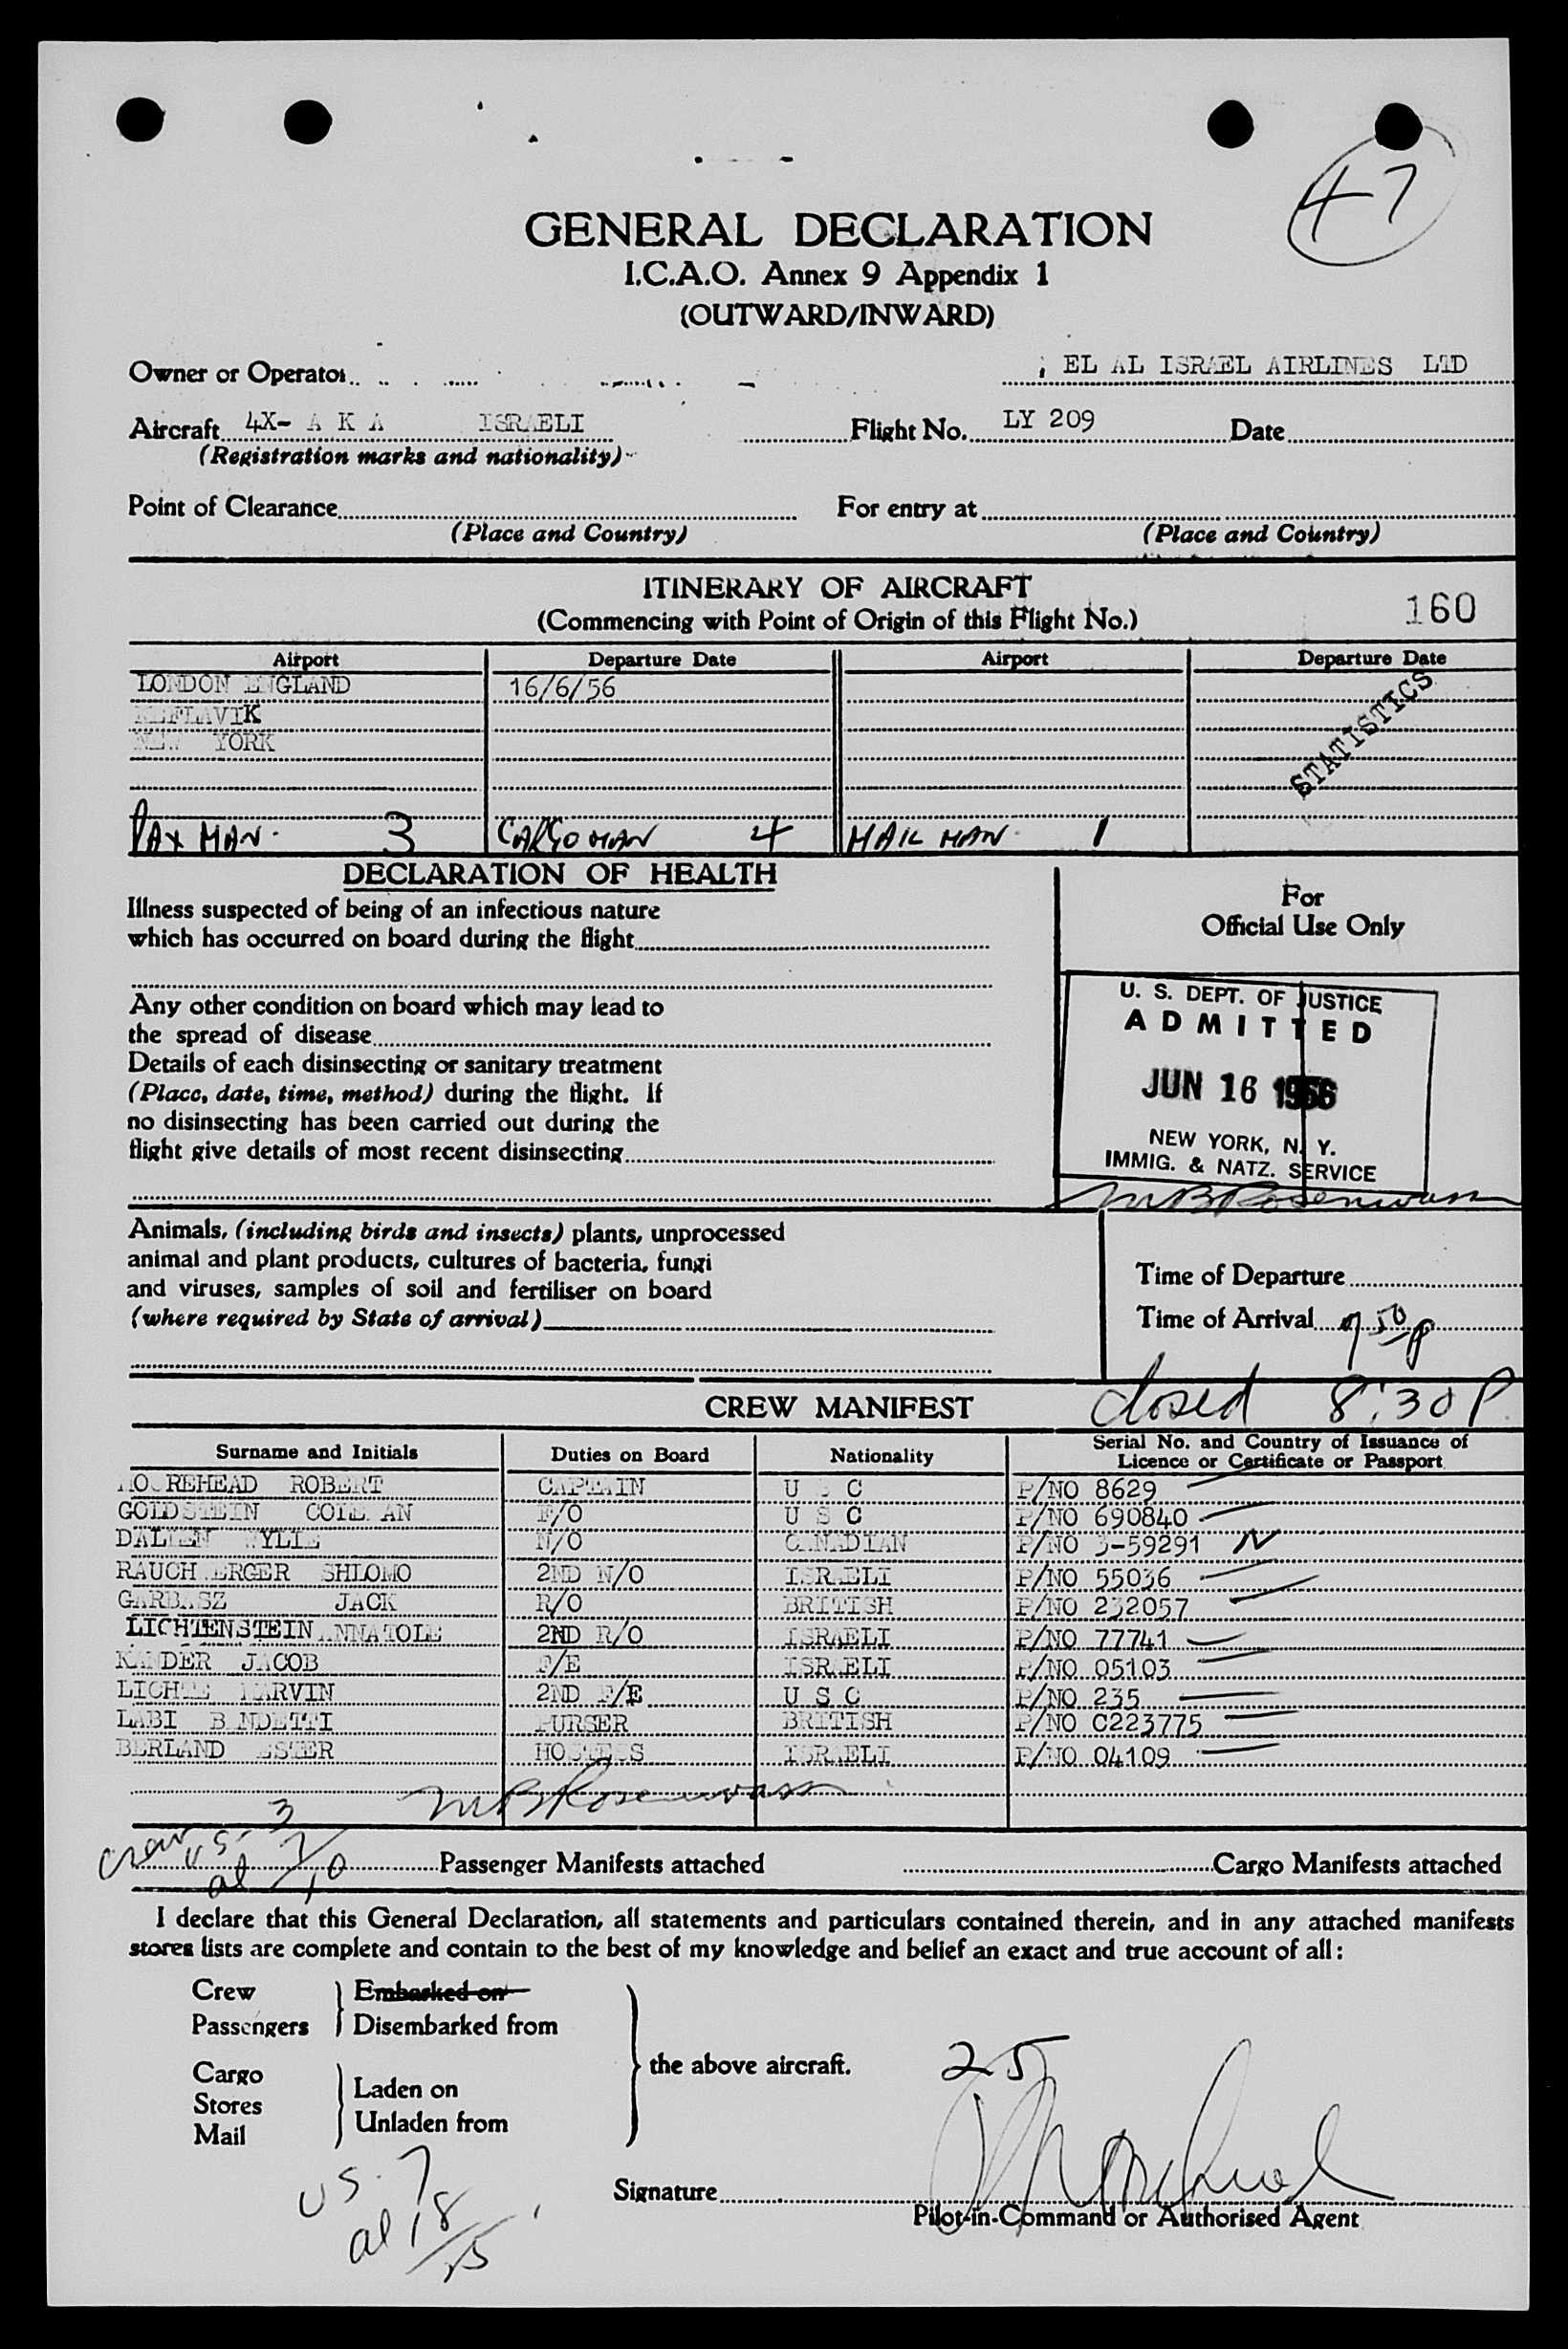 47
GENERAL DECLARATION
I.C.A.O. Annex 9 Appendix 1
(OUTWARD/INWARD)
Owner or Operator EL AL ISRAEL AIRLINES LTD
Aircraft 4X- A K A ISRAELI Flight No. LY 209 Date
(Registration marks and nationality)
Point of Clearance For entry at
(Place and Country) (Place and Country)
ITINERARY OF AIRCRAFT
(Commencing with Point of Origin of this Flight No.) 160
Airport Departure Date Airport Departure Date
LONDON ENGLAND 16/6/56
KEFLAVIK
NEW YORK
STATISTICS
PAX MAN. 3 CARGO MAN 4 MAIL MAN. 1
DECLARATION OF HEALTH
Illness suspected of being of an infectious nature
which has occurred on board during the flight
For
Official Use Only
Any other condition on board which may lead to
the spread of disease
Details of each disinsecting or sanitary treatment
(Place, date, time, method) during the flight. If
no disinsecting has been carried out during the
flight give details of most recent disinsecting
U. S. DEPT. OF JUSTICE
ADMITTED
JUN 16 1956
NEW YORK, N. Y.
IMMIG. & NATZ. SERVICE
Animals, (including birds and insects) plants, unprocessed
animal and plant products, cultures of bacteria, fungi
and viruses, samples of soil and fertiliser on board
(where required by State of arrival)
Time of Departure
Time of Arrival 7 50 p
CREW MANIFEST closed 8:30 P
Surname and Initials Duties on Board Nationality Serial No. and Country of Issuance of Licence or Certificate or Passport
ROBERT CAPTAIN U S C P/NO 8629
GOLDSTEIN F/O U S C P/NO 690840
N/O CANADIAN P/NO 3-59291 N
RAUCHBERGER SHLOMO 2ND N/O ISRAELI P/NO 55036
GARBASZ JACK R/O BRITISH P/NO 232057
LICHTENSTEIN ANNATOLE 2ND R/O ISRAELI P/NO 77741
JACOB F/E ISRAELI P/NO 05103
MARVIN 2ND F/E U S C P/NO 235
LABI PURSER BRITISH P/NO C223775
BERLAND ESTER HOSTESS ISRAELI P/NO 04109
Crew us- 3
al 7
10
Passenger Manifests attached Cargo Manifests attached
I declare that this General Declaration, all statements and particulars contained therein, and in any attached manifests
stores lists are complete and contain to the best of my knowledge and belief an exact and true account of all:
Crew Embarked on
Passengers Disembarked from
the above aircraft.
Cargo Laden on
Stores Unladen from
Mail
25
us. 7
al 18
Signature
Pilot-in-Command or Authorised Agent